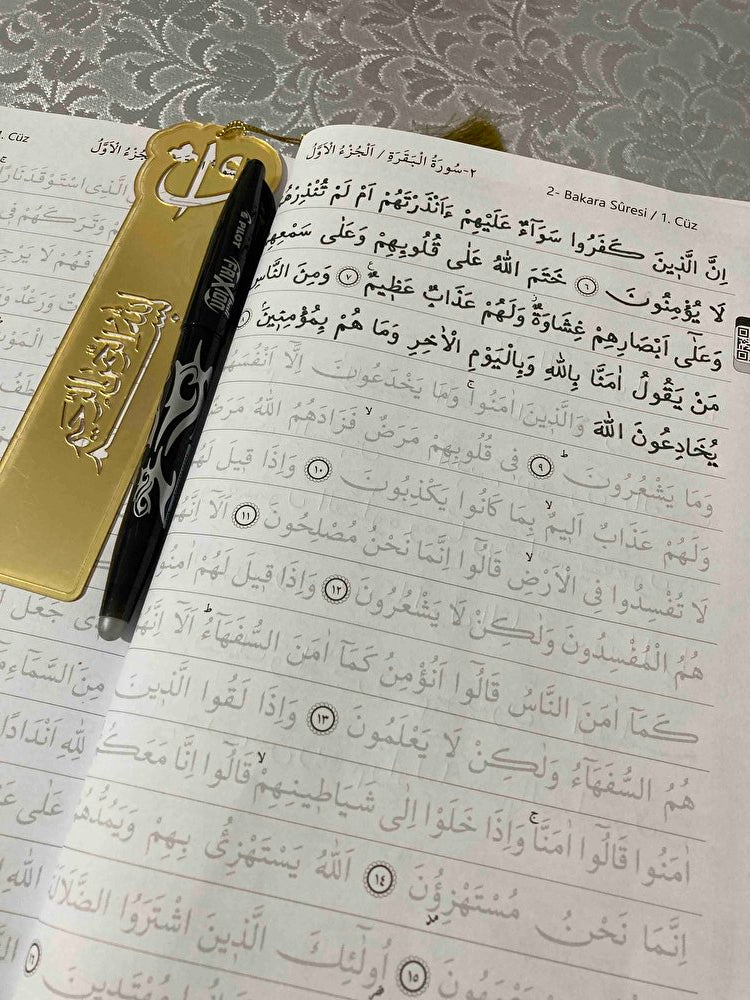 1. Cüz
٢-سُورَةُ الْبَقَرَةِ / اَلْجُزْءُ الْاَوَّلُ
2- Bakara Sûresi / 1. Cüz
اِنَّ الَّذ۪ينَ كَفَرُوا سَوَٓاءٌ عَلَيْهِمْ ءَاَنْذَرْتَهُمْ اَمْ لَمْ تُنْذِرْهُمْ
لَا يُؤْمِنُونَ ٦ خَتَمَ اللّٰهُ عَلٰى قُلُوبِهِمْ وَعَلٰى سَمْعِهِمْ
وَعَلٰٓى اَبْصَارِهِمْ غِشَاوَةٌۘ وَلَهُمْ عَذَابٌ عَظ۪يمٌ۟ ٧ وَمِنَ النَّاسِ
مَنْ يَقُولُ اٰمَنَّا بِاللّٰهِ وَبِالْيَوْمِ الْاٰخِرِ وَمَا هُمْ بِمُؤْمِن۪ينَۢ ٨
يُخَادِعُونَ اللّٰهَ وَالَّذ۪ينَ اٰمَنُواۚ وَمَا يَخْدَعُونَ اِلَّٓا اَنْفُسَهُمْ
وَمَا يَشْعُرُونَۜ ٩ ف۪ي قُلُوبِهِمْ مَرَضٌۙ فَزَادَهُمُ اللّٰهُ مَرَضًا
وَلَهُمْ عَذَابٌ اَل۪يمٌۙ بِمَا كَانُوا يَكْذِبُونَ ١٠ وَاِذَا ق۪يلَ لَهُمْ
لَا تُفْسِدُوا فِي الْاَرْضِۙ قَالُٓوا اِنَّمَا نَحْنُ مُصْلِحُونَ ١١ اَلَٓا اِنَّهُمْ
هُمُ الْمُفْسِدُونَ وَلٰكِنْ لَا يَشْعُرُونَ ١٢ وَاِذَا ق۪يلَ لَهُمْ اٰمِنُوا
كَمَٓا اٰمَنَ النَّاسُ قَالُٓوا اَنُؤْمِنُ كَمَٓا اٰمَنَ السُّفَهَٓاءُۜ اَلَٓا اِنَّهُمْ
هُمُ السُّفَهَٓاءُ وَلٰكِنْ لَا يَعْلَمُونَ ١٣ وَاِذَا لَقُوا الَّذ۪ينَ
اٰمَنُوا قَالُٓوا اٰمَنَّاۚ وَاِذَا خَلَوْا اِلٰى شَيَاط۪ينِهِمْۙ قَالُٓوا اِنَّا مَعَكُمْ
اِنَّمَا نَحْنُ مُسْتَهْزِؤُ۫نَ ١٤ اَللّٰهُ يَسْتَهْزِئُ بِهِمْ وَيَمُدُّهُمْ
١٥ اُو۬لٰٓئِكَ الَّذ۪ينَ اشْتَرَوُا الضَّلَالَةَ
PILOT
FRIXION
بسم الله الرحمن الرحيم